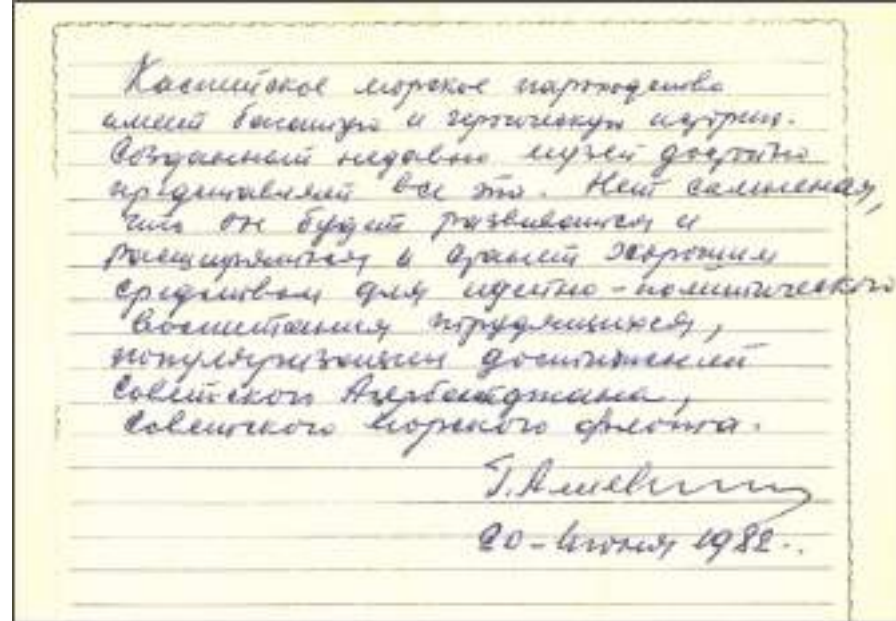 Каспийское морское пароходство
имеет богатую и героическую историю.
Созданный недавно музей достойно
представляет все это. Нет сомнения,
что он будет развиваться и
расширяться и станет хорошим
средством для идейно-политического
воспитания трудящихся,
популяризации достижений
Советского Азербайджана,
Советского морского флота.
Г. Алиев
20-Июня 1982.